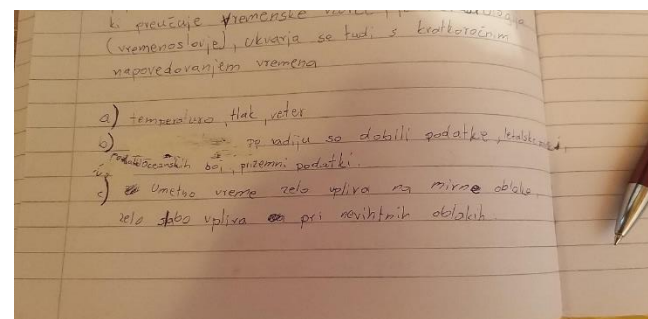 k preučuje vremenske
(vremenoslovje), ukvarja se tudi s kratkoročnim
napovedovanjem vremena
a) temperaturo, tlak, veter
b) pp radiju so dobili podatke,
oceanskih boj, prizemni podatki.
c) Umetno vreme zelo vpliva na mirne oblake,
zelo slabo vpliva pri nevihtnih oblakih.